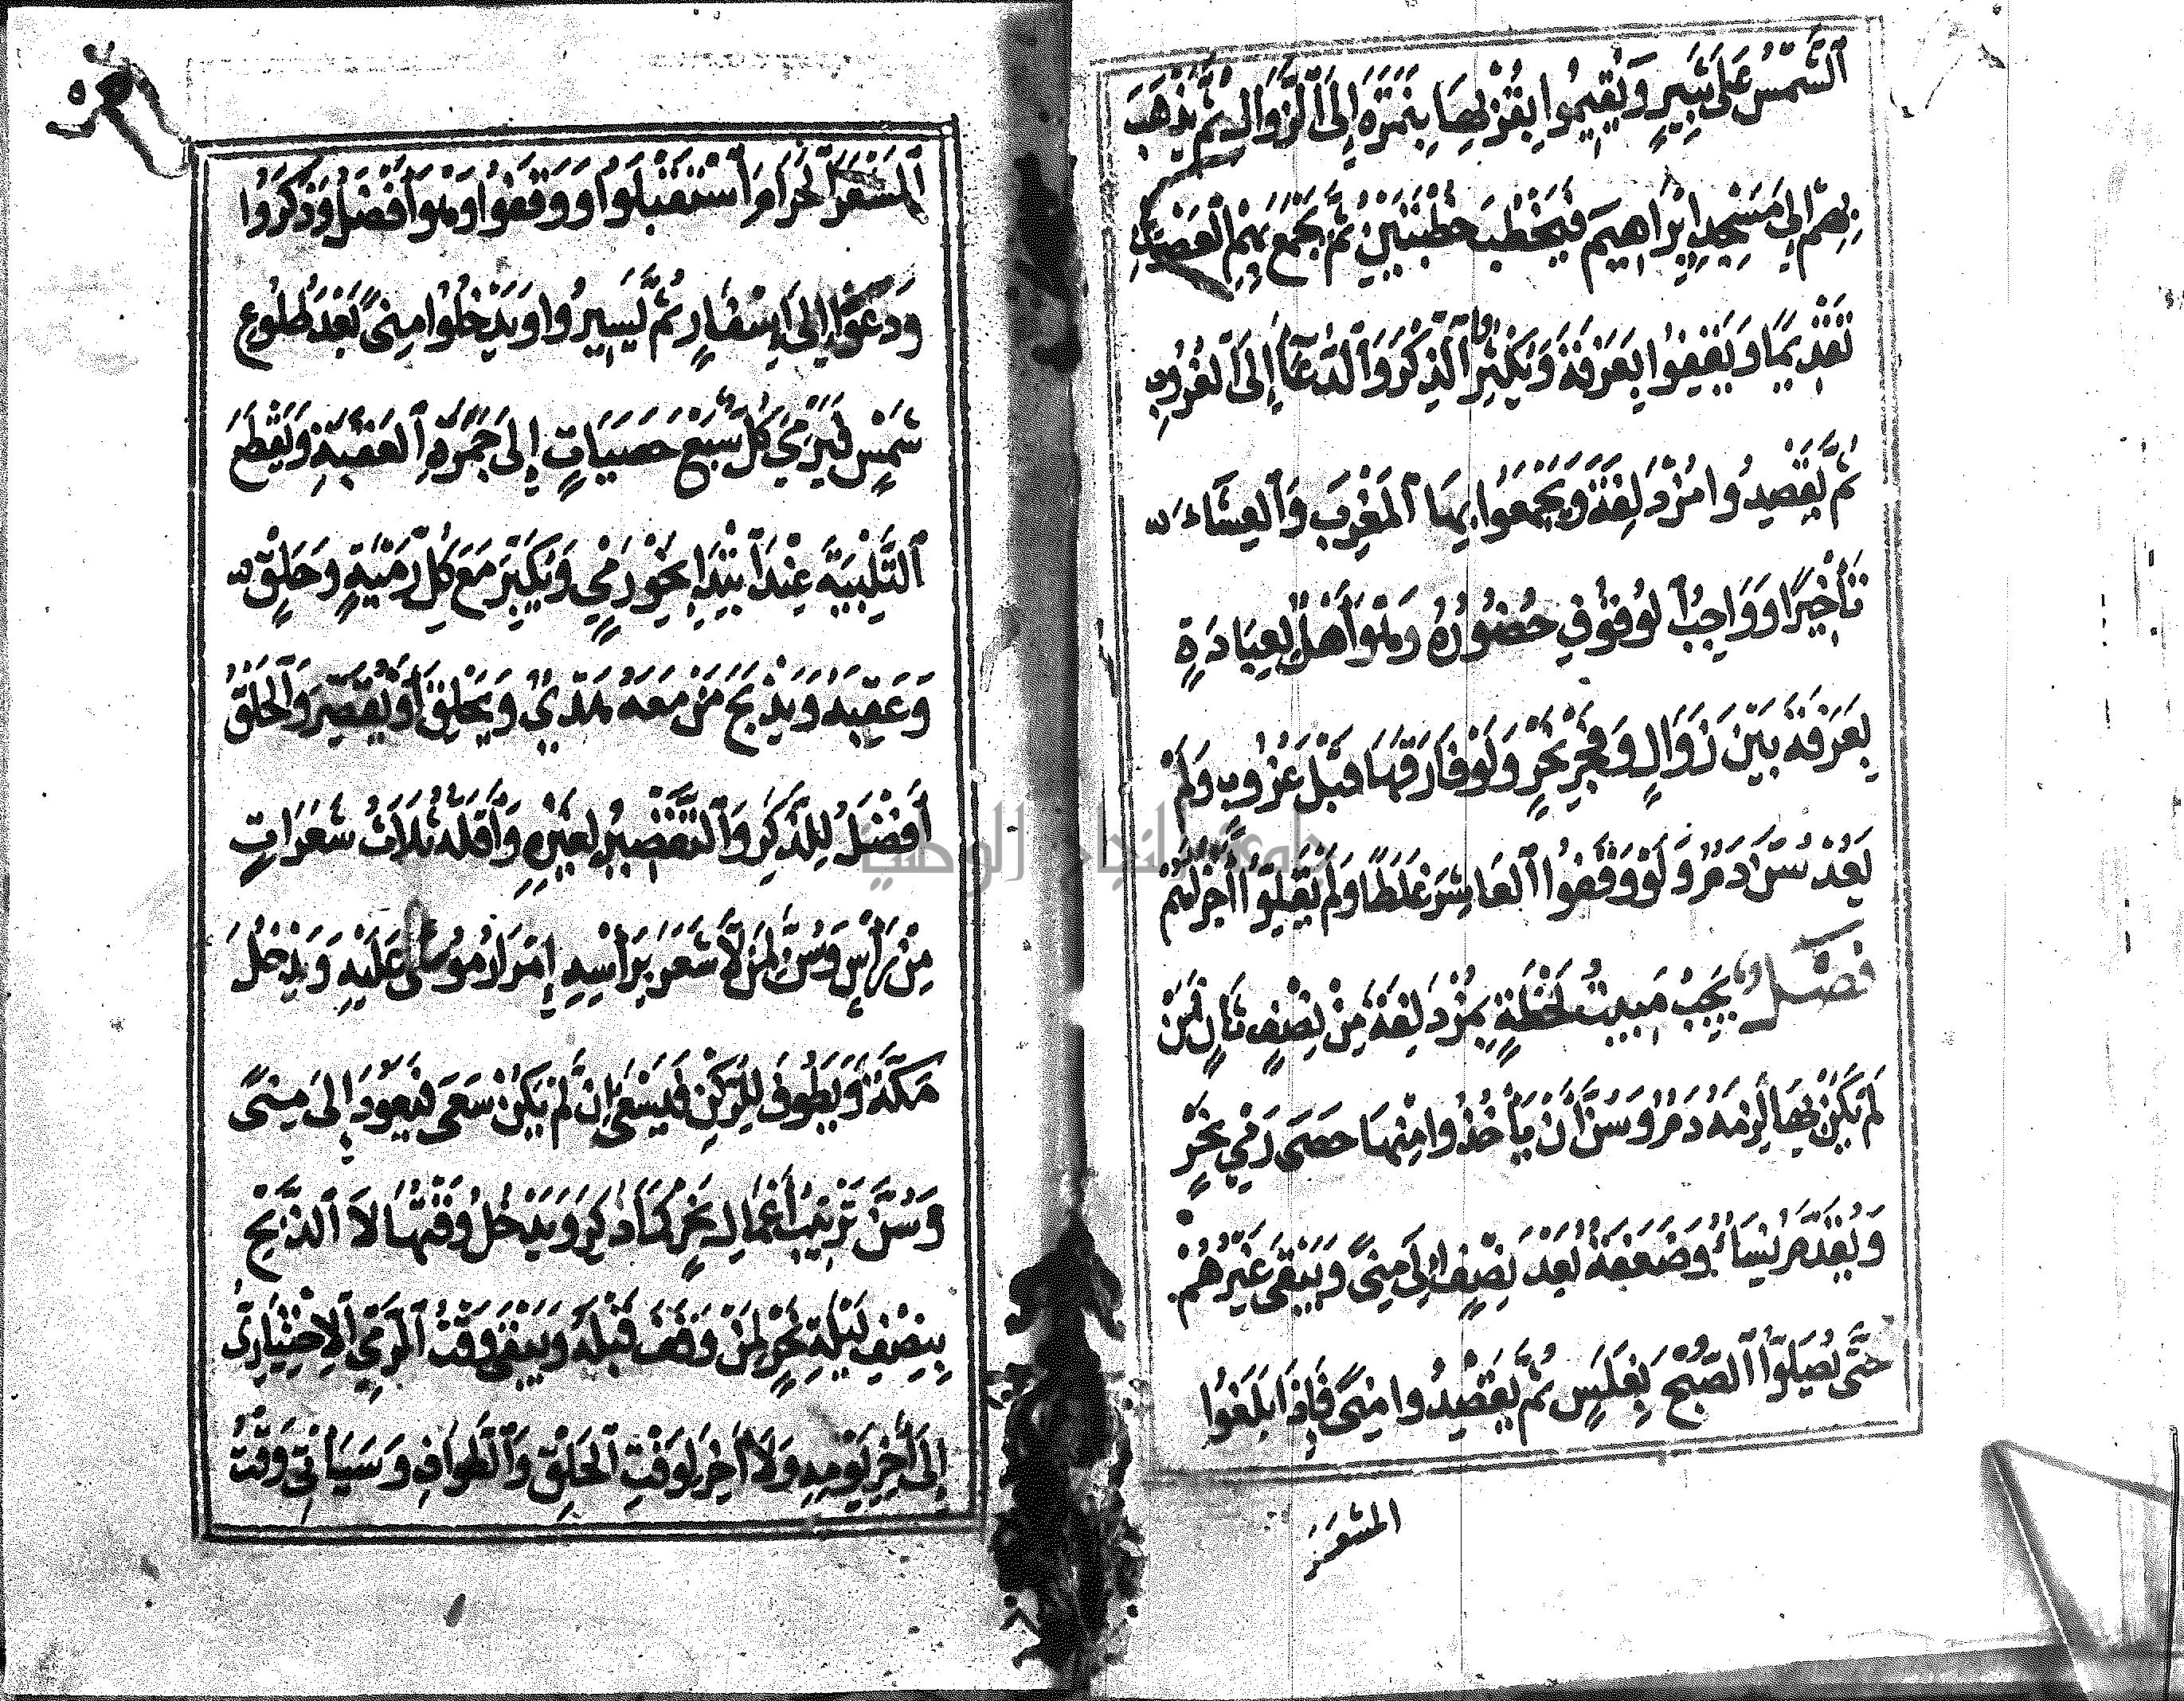 ٱلشَّمْسُ عَلَى ثَبِيرٍ وَيُقِيمُوا بِقُرْبِهَا بِنَمِرَةَ إِلَى ٱلزَّوَالِ ثُمَّ يَذْهَبَ
بِهِمْ إِلَى مَسْجِدِ إِبْرَاهِيمَ فَيَخْطُبَ خُطْبَتَيْنِ ثُمَّ يَجْمَعَ بِهِمُ ٱلْعَصْرَيْنِ
تَقْدِيمًا وَيَقِفُوا بِعَرَفَةَ وَيُكْثِرُوا ٱلذِّكْرَ وَٱلدُّعَآءَ إِلَى ٱلْغُرُوبِ
ثُمَّ يَقْصِدُوا مُزْدَلِفَةَ وَيَجْمَعُوا بِهَا ٱلْمَغْرِبَ وَٱلْعِشَاءَ
تَأْخِيرًا وَوَاجِبُ ٱلْوُقُوفِ حُضُورُهُ وَهُوَ أَهْلٌ لِعِبَادَةٍ
بِعَرَفَةَ بَيْنَ زَوَالٍ وَفَجْرِ نَحْرٍ وَلَوْ فَارَقَهَا قَبْلَ غُرُوبٍ وَلَمْ
يَعُدْ سُنَّ دَمٌ وَلَوْ وَقَفُوا ٱلْعَاشِرَ غَلَطًا وَلَمْ يَقِلُّوا أَجْزَأَهُمْ
فَصْلٌ يَجِبُ مَبِيتُ لَحْظَةٍ بِمُزْدَلِفَةَ مِنْ نِصْفٍ ثَانٍ فَمَنْ
لَمْ يَكُنْ بِهَا لَزِمَهُ دَمٌ وَسُنَّ أَنْ يَأْخُذُوا مِنْهَا حَصَى رَمْيِ نَحْرٍ
وَيُقَدَّمَ نِسَاءٌ وَضَعَفَةٌ بَعْدَ نِصْفٍ إِلَى مِنًى وَيَبْقَى غَيْرُهُمْ
حَتَّى يُصَلُّوا ٱلصُّبْحَ بِغَلَسٍ ثُمَّ يَقْصِدُوا مِنًى فَإِذَا بَلَغُوا
المشعر
ٱلْمَشْعَرَ ٱلْحَرَامَ ٱسْتَقْبَلُوا وَوَقَفُوا وَهُوَ أَفْضَلُ وَذَكَرُوا
وَدَعَوْا إِلَى إِسْفَارٍ ثُمَّ يَسِيرُوا وَيَدْخُلُوا مِنًى بَعْدَ طُلُوعِ
شَمْسٍ فَيَرْمِيَ كُلٌّ سَبْعَ حَصَيَاتٍ إِلَى جَمْرَةِ ٱلْعَقَبَةِ وَيَقْطَعَ
ٱلتَّلْبِيَةَ عِنْدَ ٱبْتِدَاءِ نَحْوِ رَمْيٍ وَيُكَبِّرَ مَعَ كُلِّ رَمْيَةٍ وَحَلْقٍ
وَعَقِبَهُ وَيَذْبَحَ مَنْ مَعَهُ هَدْيٌ وَيَحْلِقَ أَوْ يُقَصِّرَ وَٱلْحَلْقُ
أَفْضَلُ لِلذَّكَرِ وَٱلتَّقْصِيرُ لِغَيْرِهِ وَأَقَلُّهُ ثَلَاثُ شَعَرَاتٍ
مِنْ رَأْسٍ وَسُنَّ لِمَنْ لَا شَعَرَ بِرَأْسِهِ إِمْرَارُ مُوسَى عَلَيْهِ وَيَدْخُلَ
مَكَّةَ وَيَطُوفَ لِلرُّكْنِ فَيَسْعَى إِنْ لَمْ يَكُنْ سَعَى فَيَعُودَ إِلَى مِنًى
وَسُنَّ تَرْتِيبُ أَعْمَالِ نَحْرٍ كَمَا ذُكِرَ وَيَدْخُلُ وَقْتُهَا لَا ٱلذَّبْحِ
بِنِصْفِ لَيْلَةِ نَحْرٍ لِمَنْ وَقَفَ قَبْلَهُ وَيَبْقَى وَقْتُ ٱلرَّمْيِ ٱلْاِخْتِيَارِيُّ
إِلَى آخِرِ يَوْمِهِ وَلَا آخِرَ لِوَقْتِ ٱلْحَلْقِ وَٱلطَّوَافِ وَسَيَأْتِي وَقْتُ